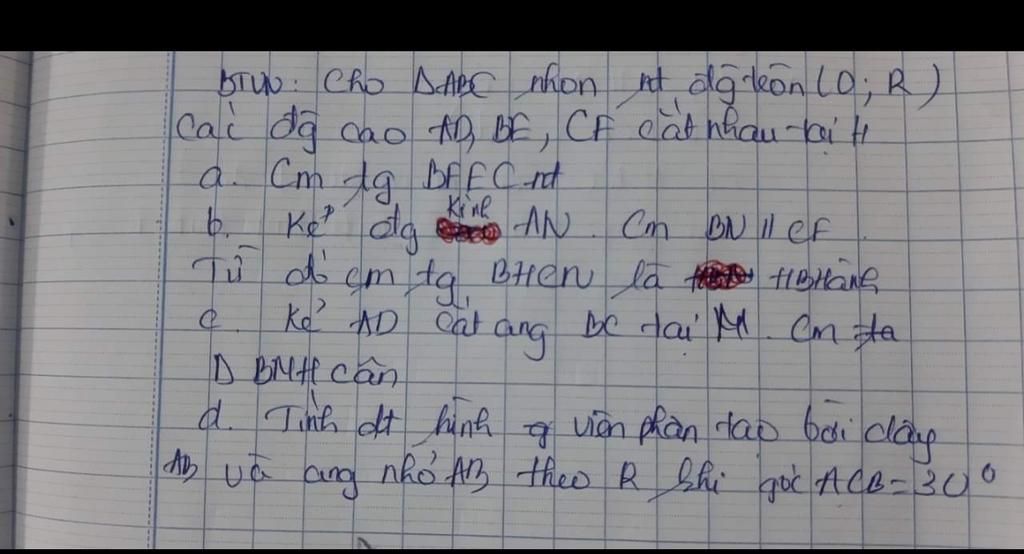 BTVN: Cho ΔABC nhọn nt đg tròn (O; R)
Các đg cao AD, BE, CF cắt nhau tại H
a. Cm tg BFEC nt
b. Kẻ đg kính AN. Cm BN // CF.
Từ đó cm tg BHCN là HBHành
c. Kẻ AD cắt cung BC tại M. Cm
Δ BMH cân
d. Tính dt hình viên phân tạo bởi dây
AB và cung nhỏ AB theo R khi góc ACB = 30°